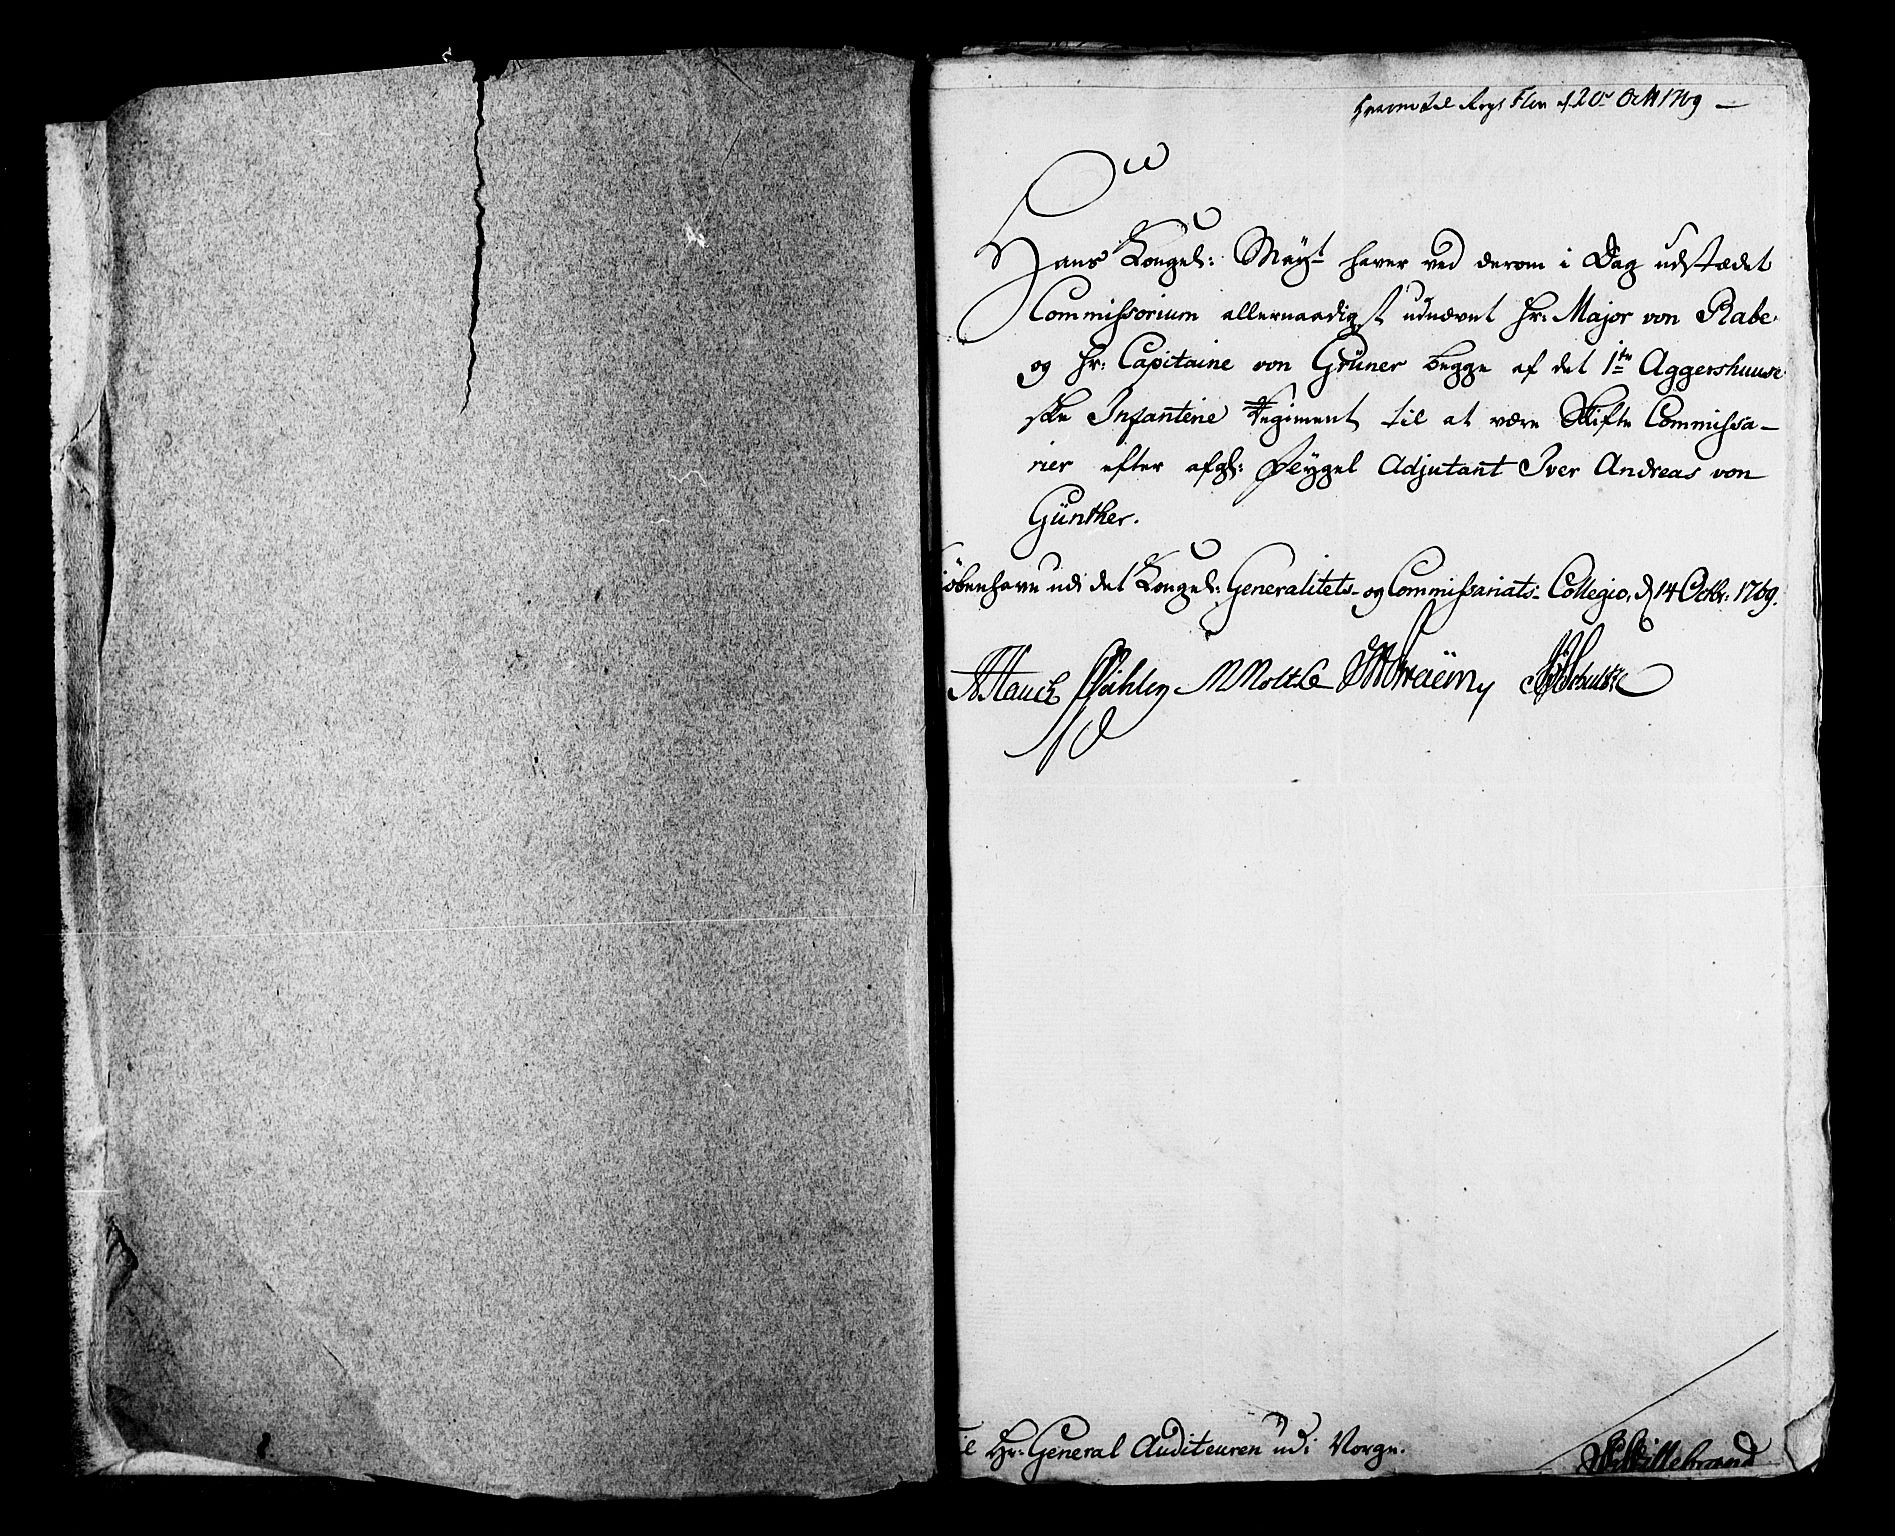 20 Oct 1769 —
Hans Kongel: Mayt. haver ved derom i Dag udstædet
Commissorium allernaadigst udnævnt Hr: Major von Rabe
og Hr: Capitaine von Grüner begge af det 1te Aggershuusi
ske Infanterie Regiment til at være Skifte Commissa-
rier efter afgl: Fleygel Adjutant Iver Andreas von
Günther.
iöbenhavn udi det Kongel: Generalitets- og Commissariats- Collegio, d 14 Octbr: 1769.
Hauch Pahlen Moltke Schultze
il Hr: General Auditeuren udi Norge.
Hillebrand